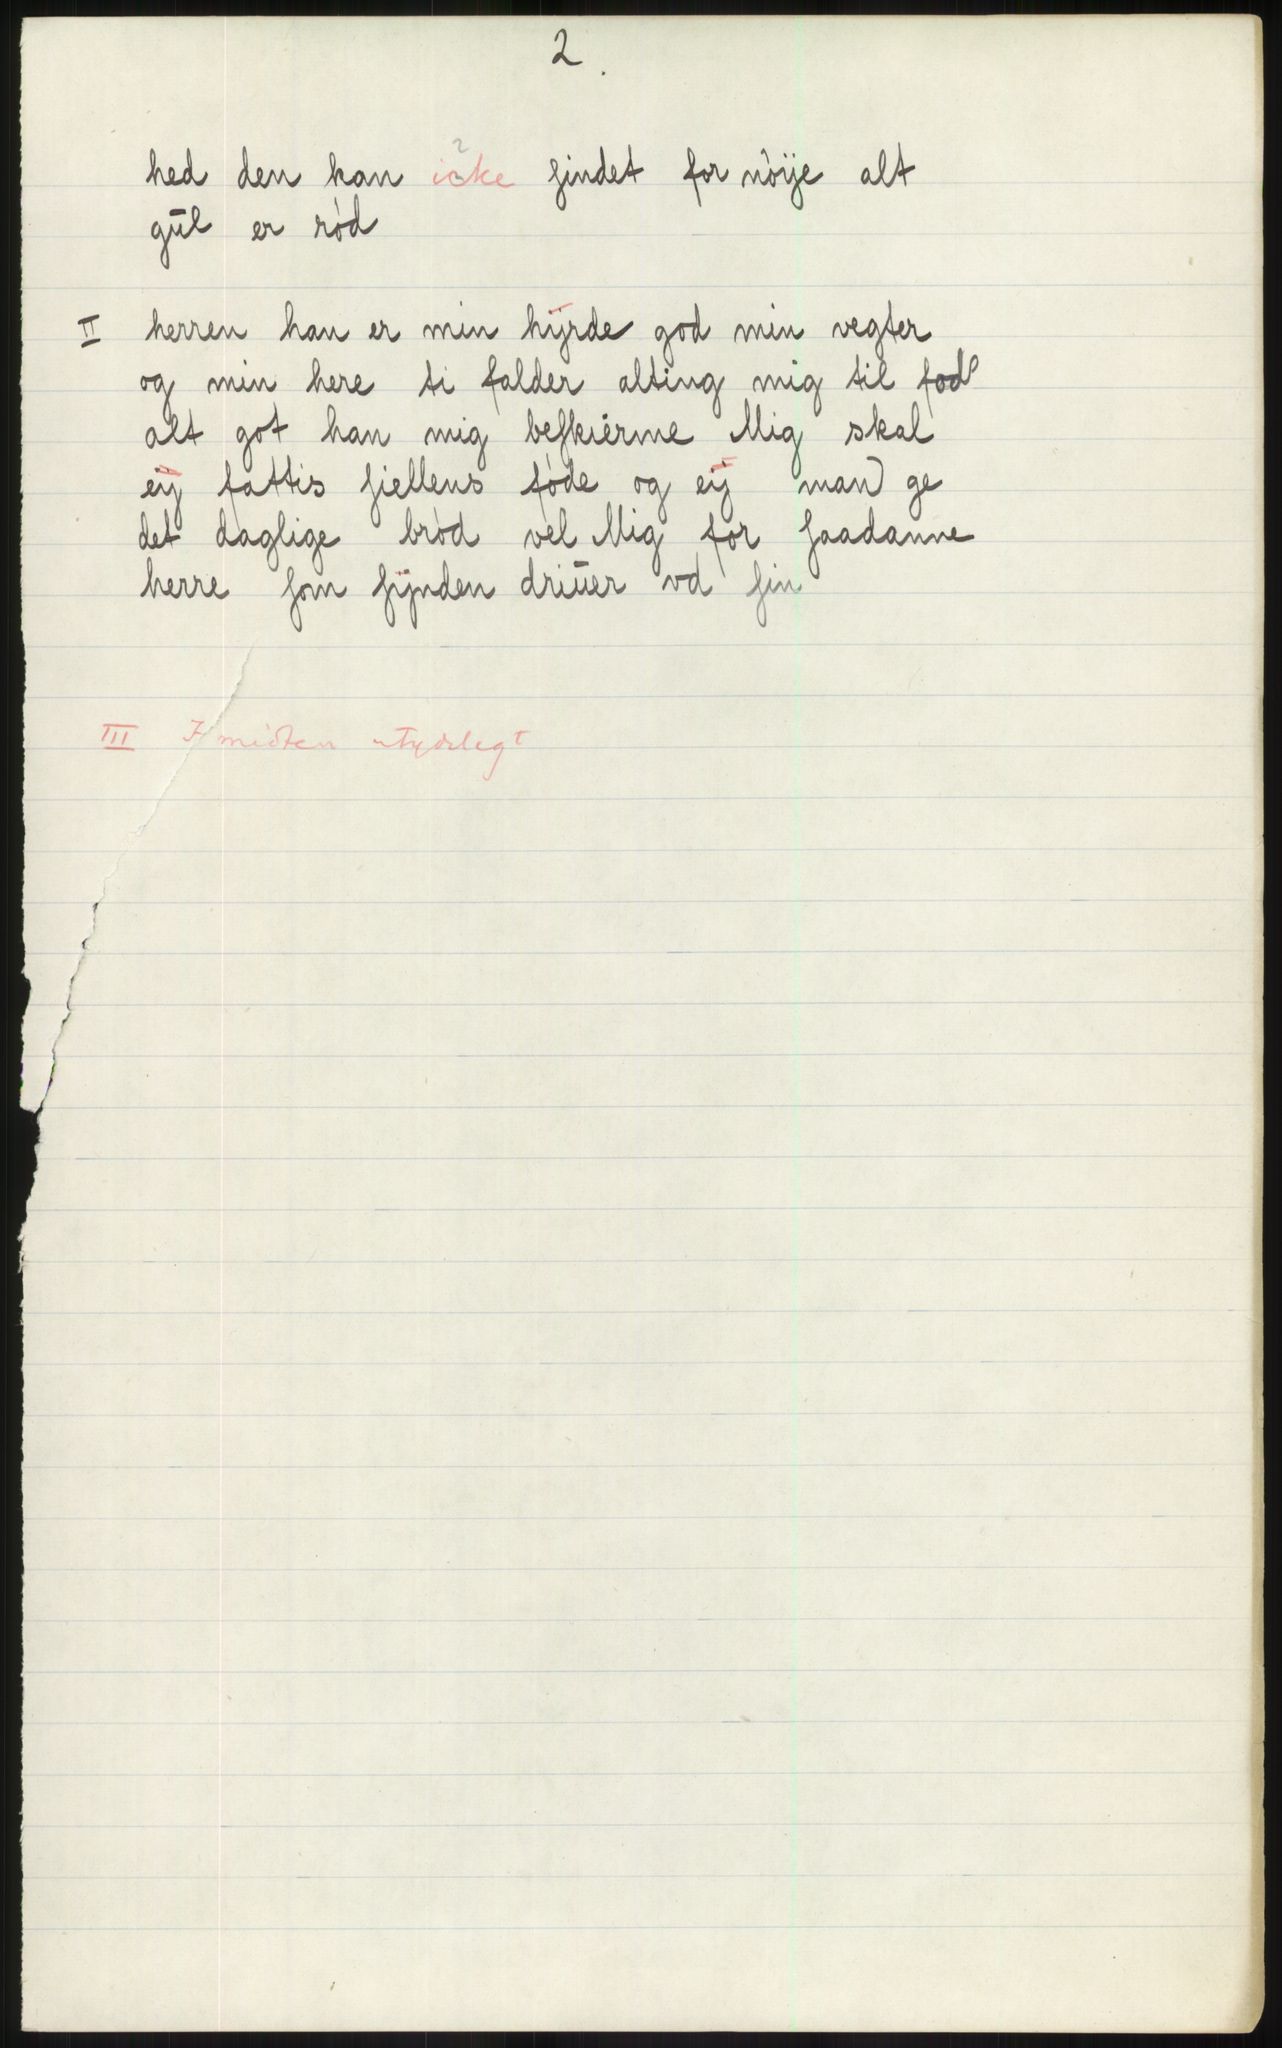 2.
hed den kan icke ſindet for nöije alt
gūl er röd
II herren han er min hÿrde god min vegter
og min here ti falder alting mig til fod
alt got han mig beſkiérme Mig skal
eÿ fattis ſiellens føde og eÿ man ge
det daglige bröd vel Mig for ſaadanne
herre ſom ſÿnden driūer vd ſin
III I midten utydelegt